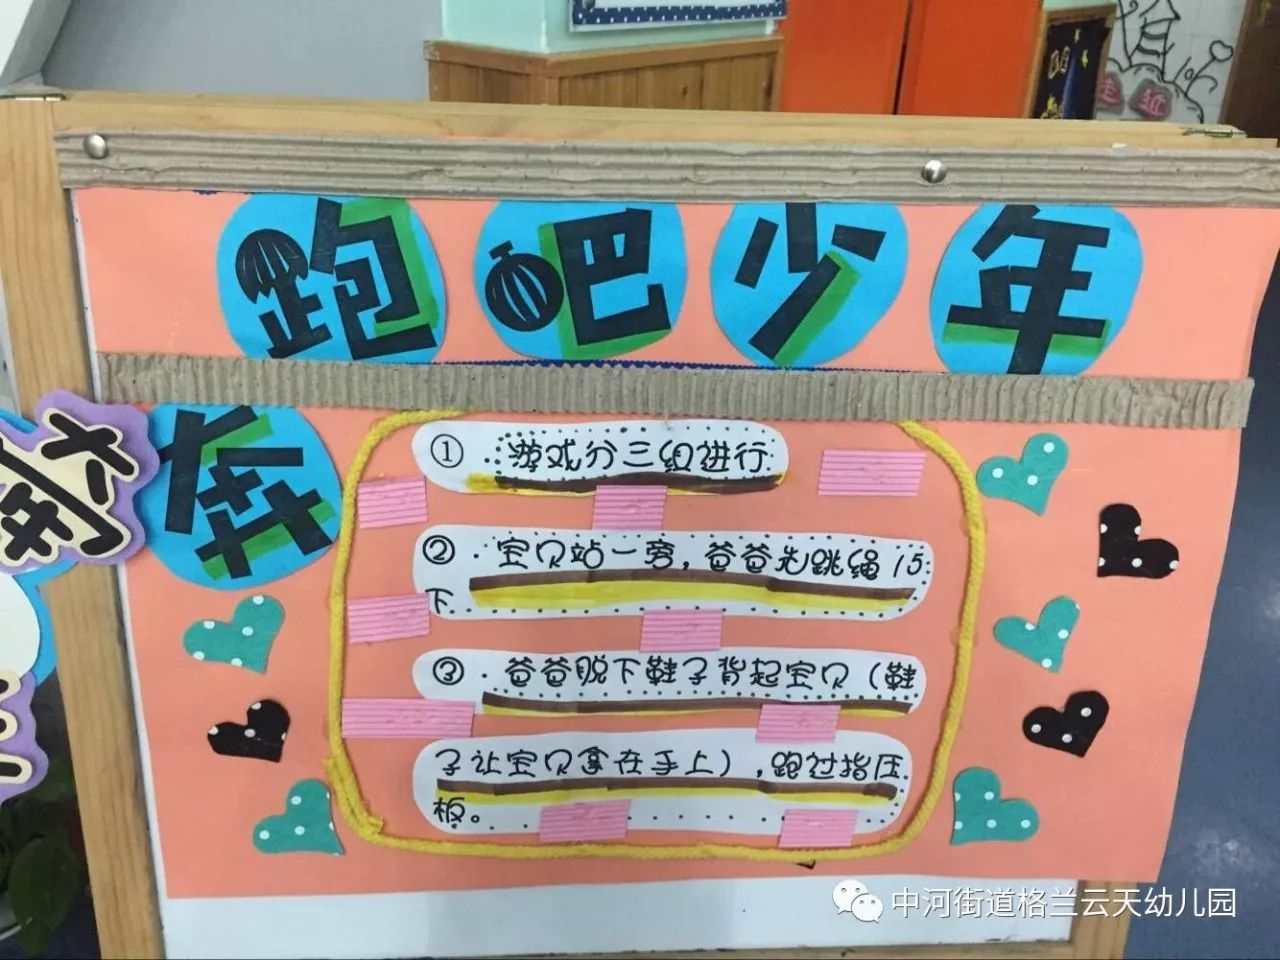 跑吧少年
奔
奔
①.游戏分三组进行.
②.宝贝站一旁,爸爸先跳绳15
下
③.爸爸脱下鞋子背起宝贝(鞋
子让宝贝拿在手上),跑过指压
板。
走近
中河街道格兰云天幼儿园